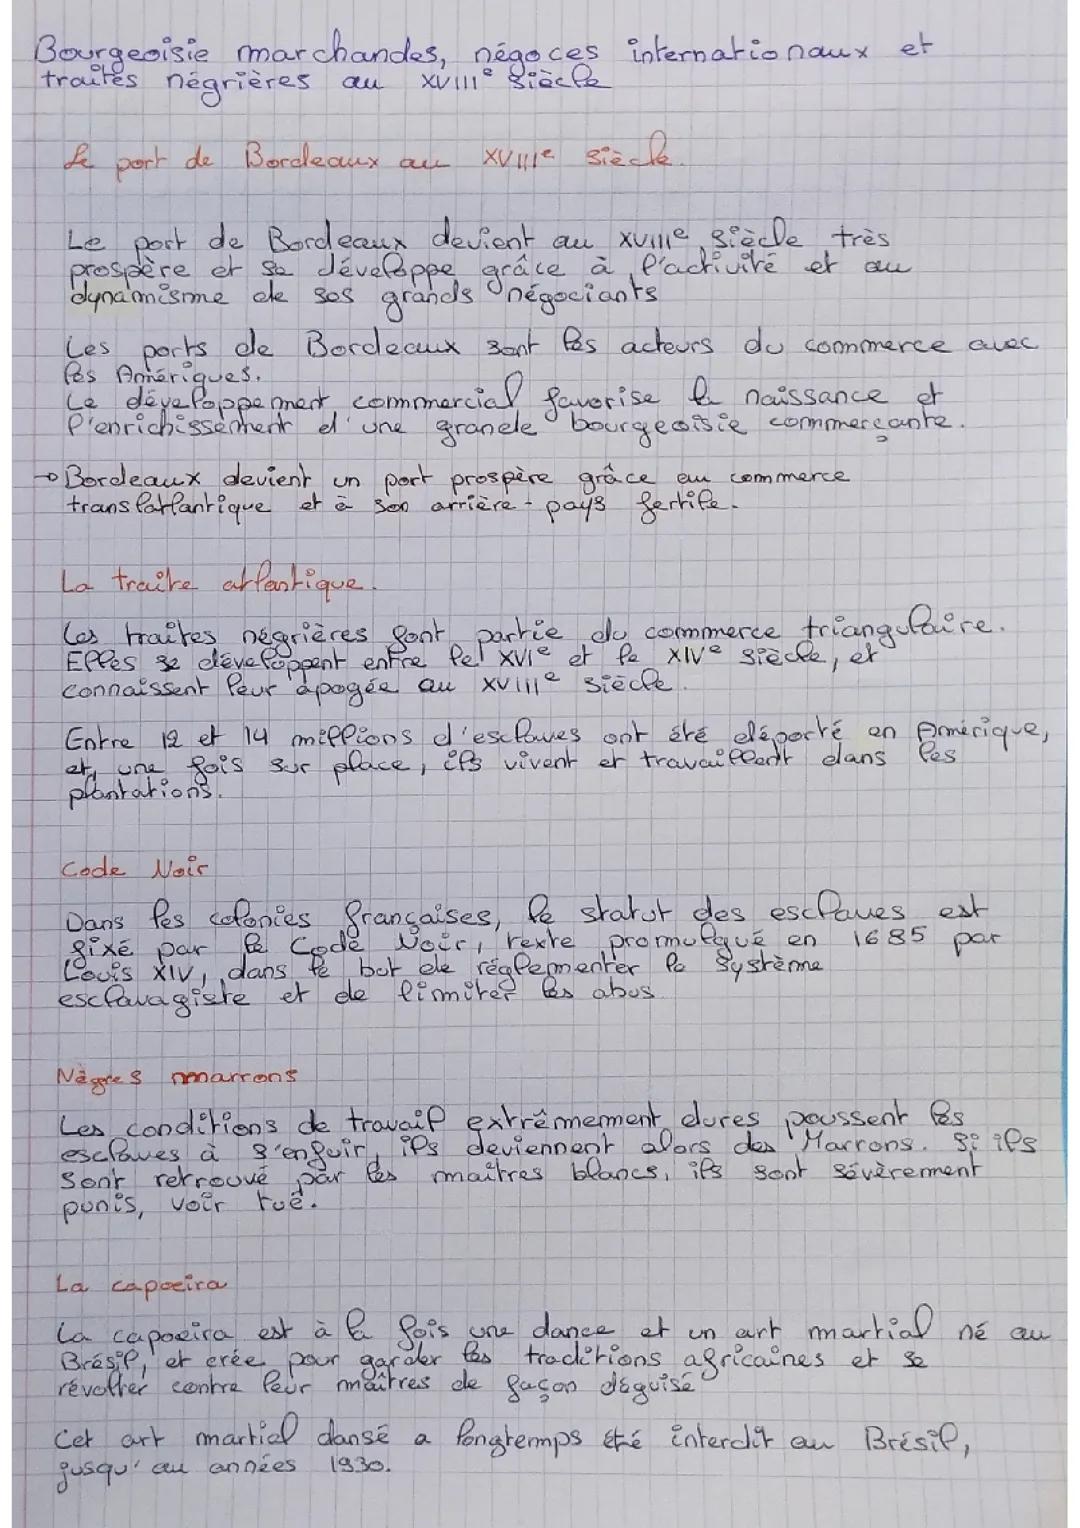 Bourgeoisie marchandes, négoces internationaux et
traites négrières au XVIIIe siècle
Le port de Bordeaux au XVIIIe siècle.
Le port de Bordeaux devient au XVIIIe siècle très
prospère et se développe grâce à l'activité et au
dynamisme de ses grands négociants
Les ports de Bordeaux sont les acteurs du commerce avec
les Amériques.
Le développement commercial favorise la naissance et
l'enrichissement d'une grande bourgeoisie commerçante.
→ Bordeaux devient un port prospère grâce au commerce
translatlantique et à son arrière-pays fertile.
La traite atlantique.
Les traites négrières font partie du commerce triangulaire.
Elles se développent entre le XVIe et le XIVe siècle, et
connaissent leur apogée au XVIIIe siècle.
Entre 12 et 14 millions d'esclaves ont été déporté en Amérique,
et, une fois sur place, ils vivent et travaillent dans les
plantations.
Code Noir
Dans les colonies françaises, le statut des esclaves est
fixé par le Code Noir, texte promulgué en 1685 par
Louis XIV, dans le but de réglementer le système
esclavagiste et de limiter les abus
Nègres marrons
Les conditions de travail extrêmement dures poussent les
esclaves à s'enfuir, ils deviennent alors des Marrons. Si ils
sont retrouvé par les maîtres blancs, ils sont sévèrement
punis, voir tué.
La capoeira
La capoeira est à la fois une dance et un art martial né au
Brésil, et crée pour garder les traditions africaines et se
révolter contre leur maîtres de façon déguisé
Cet art martial dansé a longtemps été interdit au Brésil,
jusqu'au années 1930.